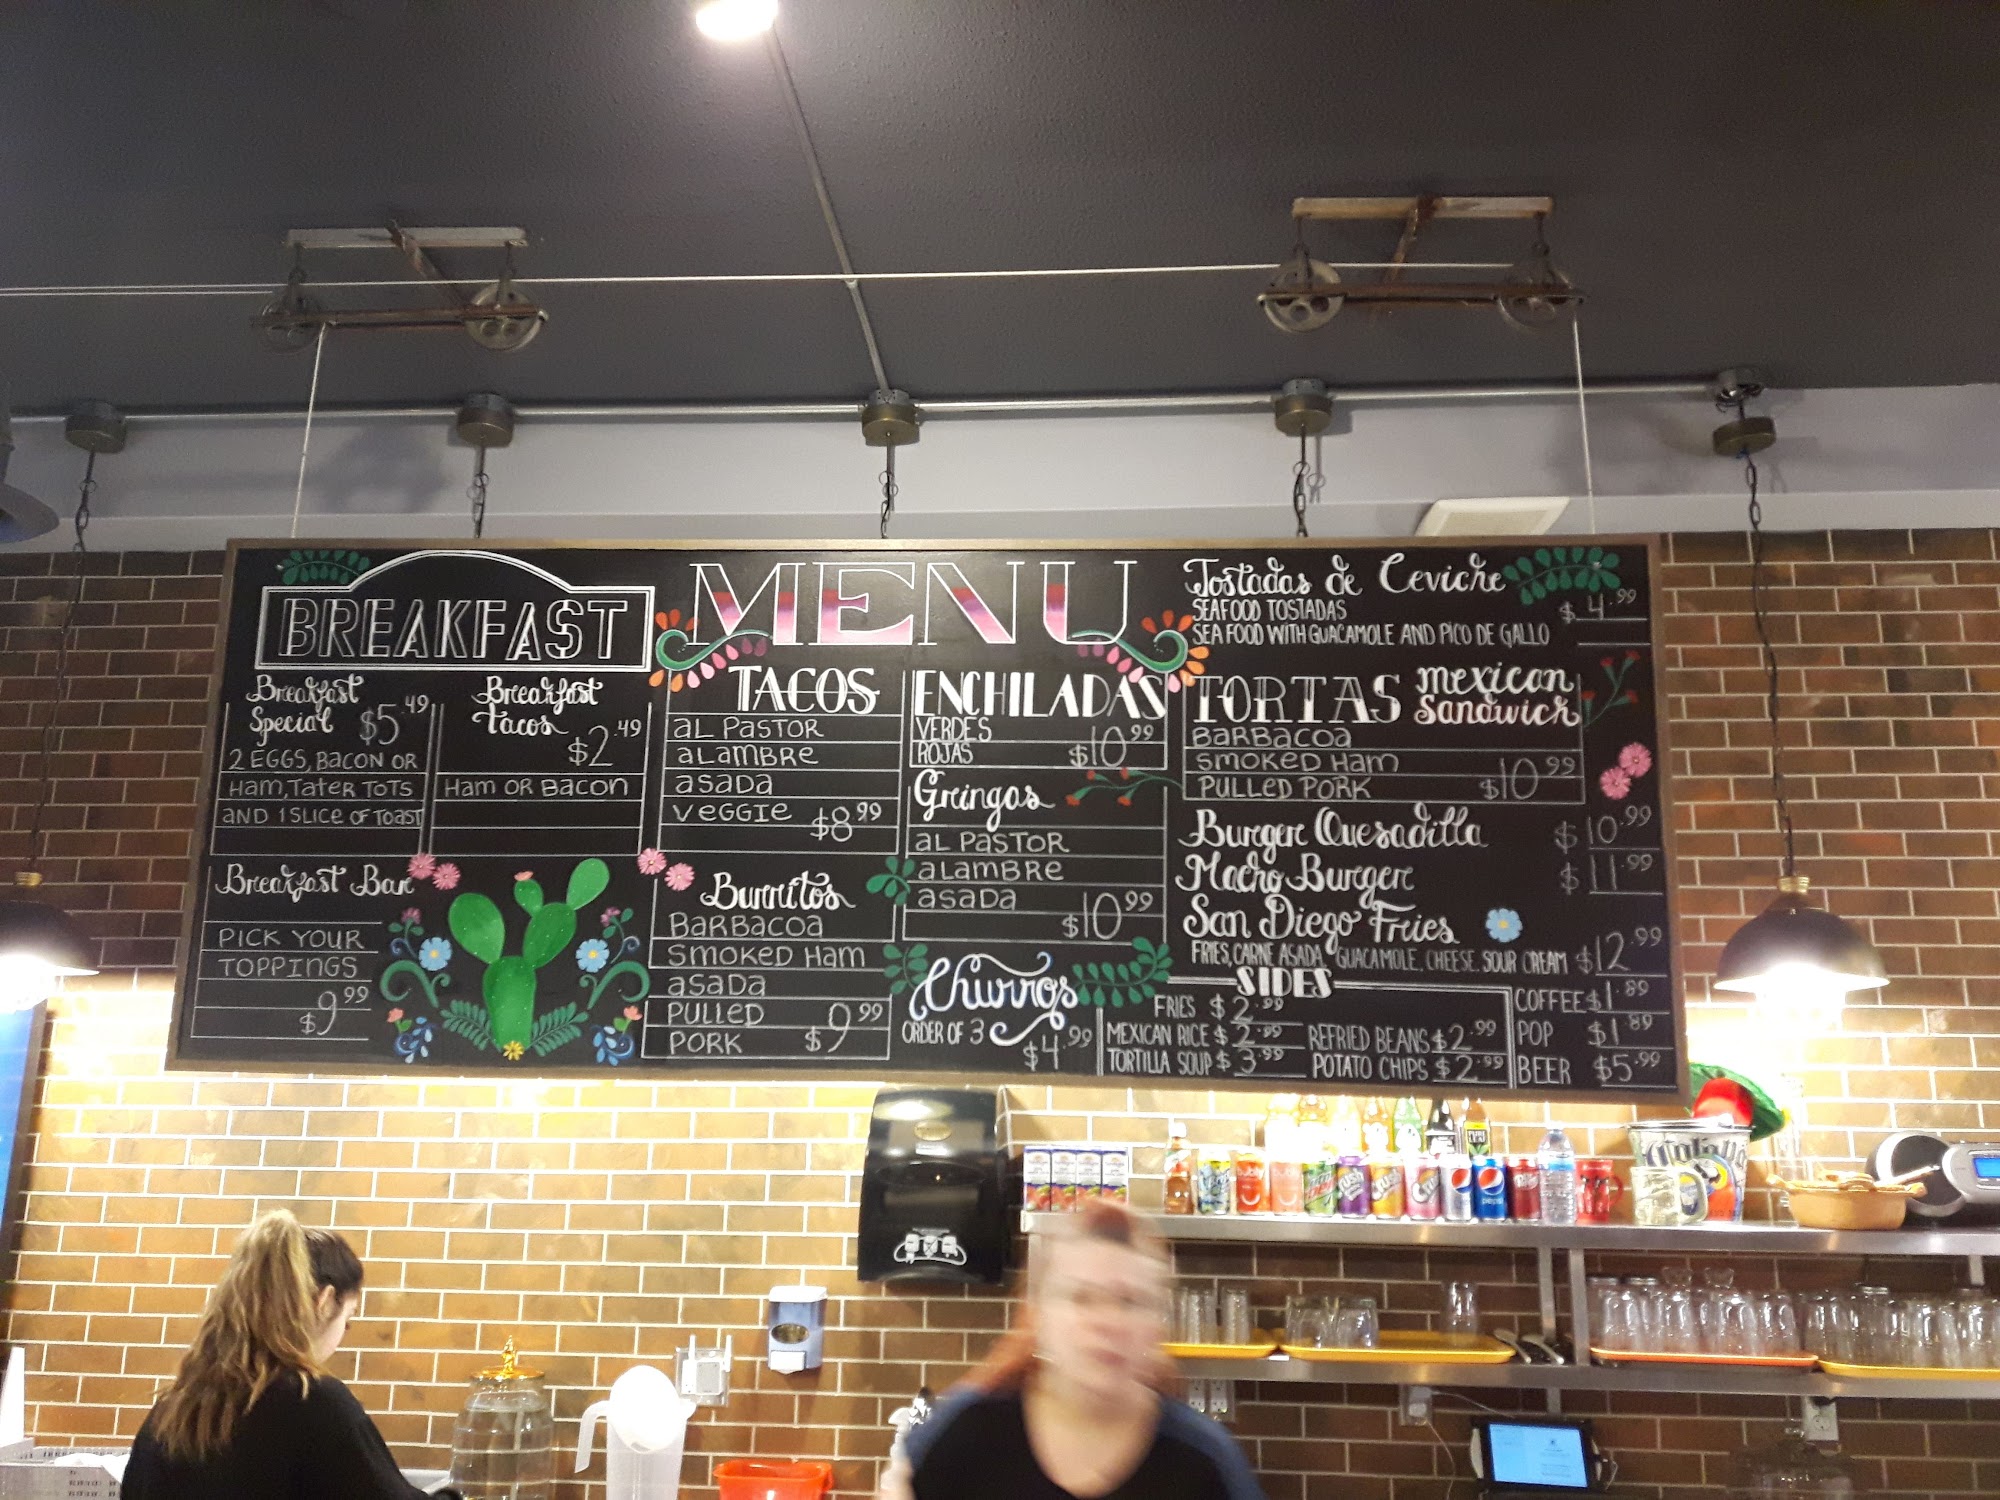 BREAKFAST
Breakfast
Special $5.49
2 EGGS, BACON OR
HAM, TATER TOTS
AND 1 SLICE OF TOAST
Breakfast
Tacos
$2.49
HAM OR BACON
Breakfast Bar
PICK YOUR
TOPPINGS
$9.99
MENU
TACOS
AL PASTOR
ALAMBRE
ASADA
VEGGIE $8.99
Burritos
BARBACOA
SMOKED HAM
ASADA
PULLED
PORK $9.99
ENCHILADAS
VERDES
ROJAS $10.99
Gringas
AL PASTOR
ALAMBRE
ASADA
$10.99
Churros
ORDER OF 3
$4.99
Tostadas de Ceviche
SEAFOOD TOSTADAS $4.99
SEAFOOD WITH GUACAMOLE AND PICO DE GALLO
TORTAS mexican
sandwich
BARBACOA
SMOKED HAM
PULLED PORK $10.99
Burger Quesadilla $10.99
Macho Burger $11.99
San Diego Fries
FRIES, CARNE ASADA, GUACAMOLE, CHEESE, SOUR CREAM $12.99
SIDES
FRIES $2.99
MEXICAN RICE $2.99 REFRIED BEANS $2.99
TORTILLA SOUP $3.99 POTATO CHIPS $2.99
COFFEE $1.89
POP $1.89
BEER $5.99
bubly
Crush
Crush
pepsi